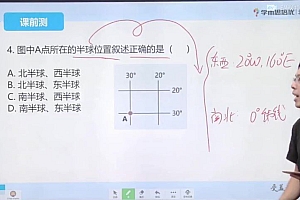 课前测
学而思培优
4. 图中A点所在的半球位置叙述正确的是（　）
A. 北半球、西半球
B. 北半球、东半球
C. 南半球、西半球
D. 南半球、东半球
30° 20°
20°
30°
A
东西 20°W, 160°E
南北 0°纬线